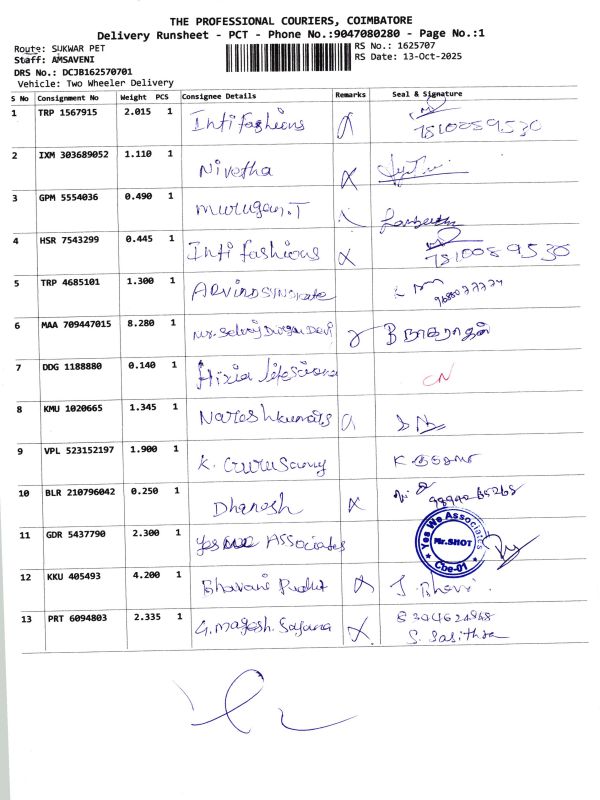 THE PROFESSIONAL COURIERS, COIMBATORE
Delivery Runsheet - PCT - Phone No.:9047080280 - Page No.:1
Route: SUKWAR PET RS No.: 1625707
Staff: AMSAVENI RS Date: 13-Oct-2025
DRS No.: DCJB162570701
Vehicle: Two Wheeler Delivery
S No Consignment No Weight PCS Consignee Details Remarks Seal & Signature
1 TRP 1567915 2.015 1 Inti fashions 7810059530
2 IXM 303689052 1.110 1 Nivetha
3 GPM 5554036 0.490 1 Murugan.T
4 HSR 7543299 0.445 1 Inti fashions 7810089530
5 TRP 4685101 1.300 1
6 MAA 709447015 8.280 1 Mr. Devi B நாகராஜன்
7 DDG 1188880 0.140 1 CN
8 KMU 1020665 1.345 1 Nareshkumar
9 VPL 523152197 1.900 1 K. Guru Samy K
10 BLR 210796042 0.250 1 Dhanesh
11 GDR 5437790 2.300 1 Yes we Associates Yes We Associates Mr.SHOT Cbe-01
12 KKU 405493 4.200 1 Bhavani J.
13 PRT 6094803 2.335 1 G. Magesh. 8344624868
S. Sasithra